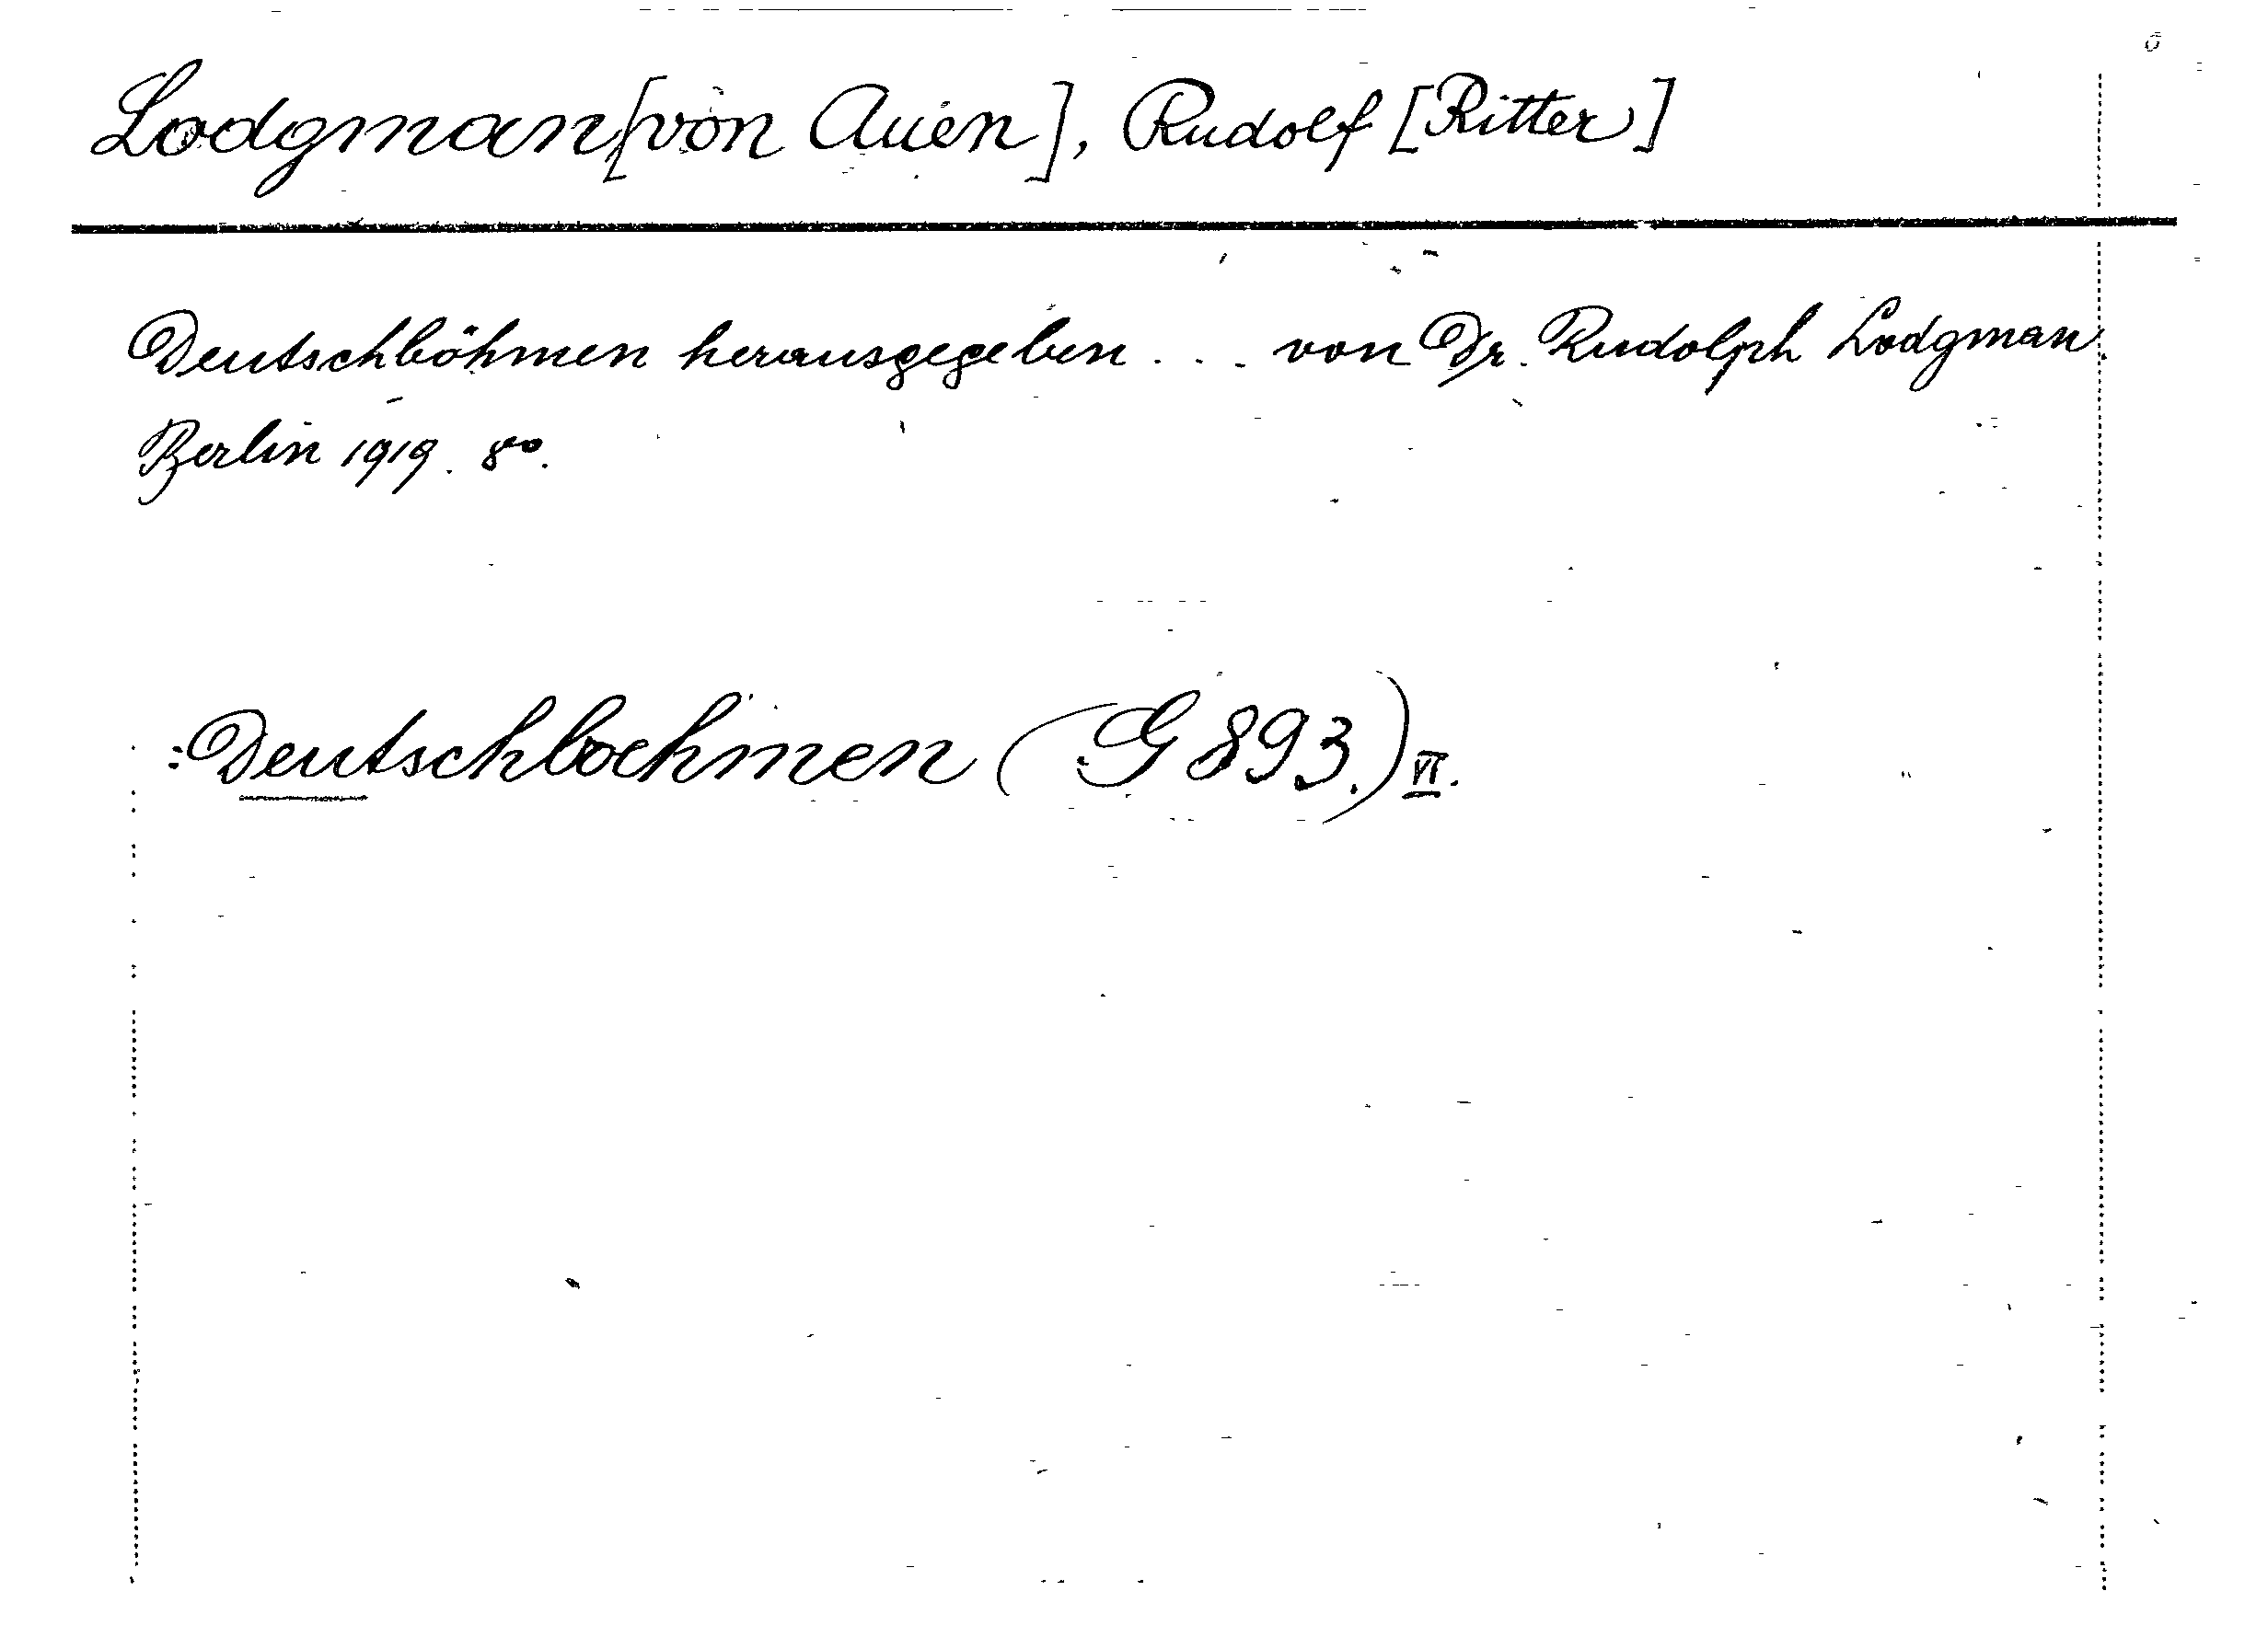 Lodgman [von Auen], Rudolf [Ritter]
Deutschböhmen herausgegeben ... von Dr. Rudolph Lodgman.
Berlin 1919. 8º.
:Deutschboehmen (G 893.) VI.